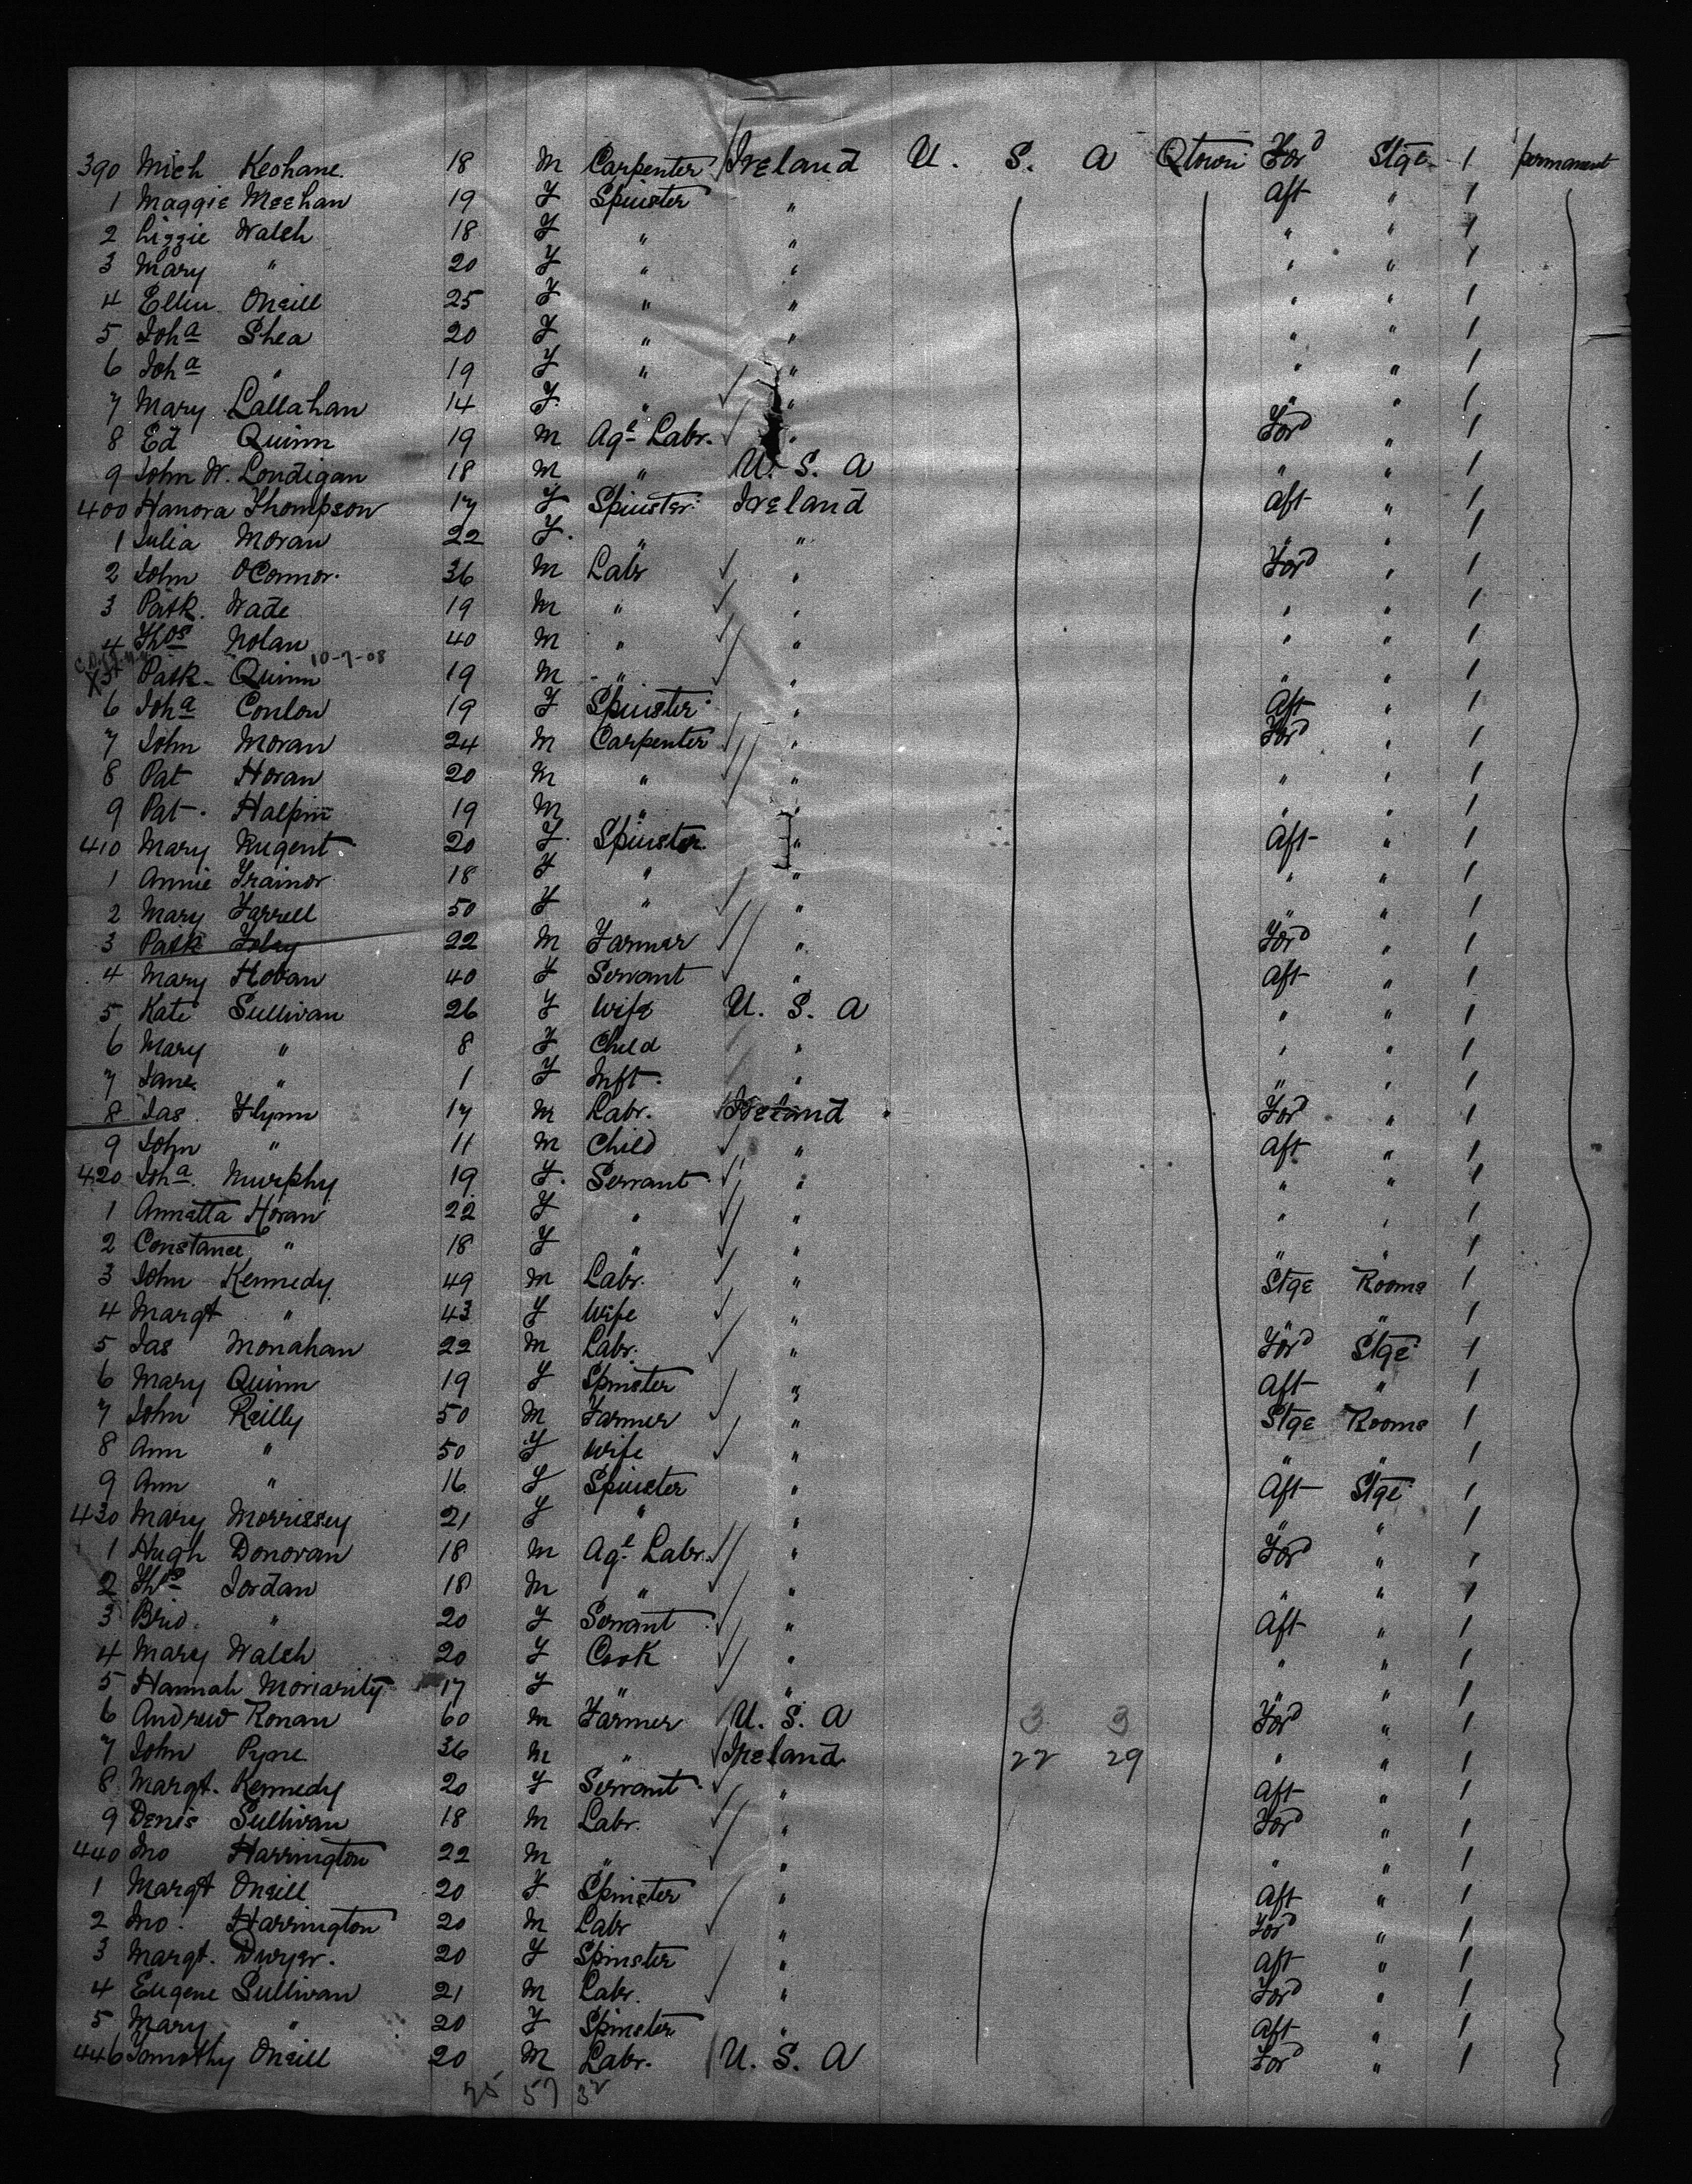 390 Mich Keohane. 18 M Carpenter Ireland U. S. A Qtown Ford Stge 1 permanent
1 Maggie Meehan 19 F Spinster " Aft " 1
2 Lizzie Walsh 18 F " " " " 1
3 Mary " 20 F " " " " 1
4 Ellen ONeill 25 F " " " " 1
5 Joha Shea 20 F " " " " 1
6 Joha " 19 F " " " " 1
7 Mary Callahan 14 F. " " " " 1
8 Ed Quinn 19 M Agl Labr. " Ford " 1
9 John W. Londigan 18 M " U. S. A " " 1
400 Hanora Thompson 17 F Spinster Ireland Aft " 1
1 Julia Moran 22 F. " " " " 1
2 John OConnor. 36 M Labr " Ford " 1
3 Patk. Wade 19 M " " " " 1
4 Thos Nolan 40 M " " " " 1
10-7-08
X 5 Patk Quinn 19 M " " " " 1
6 Joha Conlon 19 F Spinster " Aft " 1
7 John Moran 24 M Carpenter " Ford " 1
8 Pat Horan 20 M " " " " 1
9 Pat. Halpin 19 M " " " " 1
410 Mary Nugent 20 F. Spinster " Aft " 1
1 Annie Trainor 18 F " " " " 1
2 Mary Farrell 50 F " " " " 1
3 Patk Foley 22 M Farmer " Ford " 1
4 Mary Hoban 40 F Servant " Aft " 1
5 Kate Sullivan 26 F Wife U. S. A " " 1
6 Mary " 8 F Child " " " 1
7 Jane " 1 F Inft. " " " 1
8 Jas Flynn 17 M Labr. Ireland Ford " 1
9 John " 11 M Child " Aft " 1
420 Joha. Murphy 19 F. Servant " " " 1
1 Annetta Horan 22 F " " " " 1
2 Constance " 18 F " " " " 1
3 John Kennedy 49 M Labr. " Stge Rooms 1
4 Margt " 43 F Wife " " " 1
5 Jas Monahan 22 M Labr. " Ford Stge 1
6 Mary Quinn 19 F Spinster " Aft " 1
7 John Reilly 50 M Farmer " Stge Rooms 1
8 Ann " 50 F Wife " " " 1
9 Ann " 16 F Spinster " Aft Stge 1
430 Mary Morrissey 21 F " " " " 1
1 Hugh Donovan 18 M Agl Labr. " Ford " 1
2 Thos Jordan 18 M " " " " 1
3 Brid. " 20 F Servant " Aft " 1
4 Mary Walsh 20 F Cook " " " 1
5 Hannah Moriarity 17 F " " " " 1
6 Andrew Ronan 60 M Farmer U. S. A 3 3 Ford " 1
7 John Pyne 36 M " Ireland 22 29 " " 1
8 Margt. Kennedy 20 F Servant " Aft " 1
9 Denis Sullivan 18 M Labr. " Ford " 1
440 Jno Harrington 22 M " " " " 1
1 Margt ONeill 20 F Spinster " Aft " 1
2 Jno. Harrington 20 M Labr " Ford " 1
3 Margt. Dwyer. 20 F Spinster " Aft " 1
4 Eugene Sullivan 21 M Labr. " Ford " 1
5 Mary " 20 F Spinster " Aft " 1
446 Timothy ONeill 20 M Labr. U. S. A Ford " 1
57